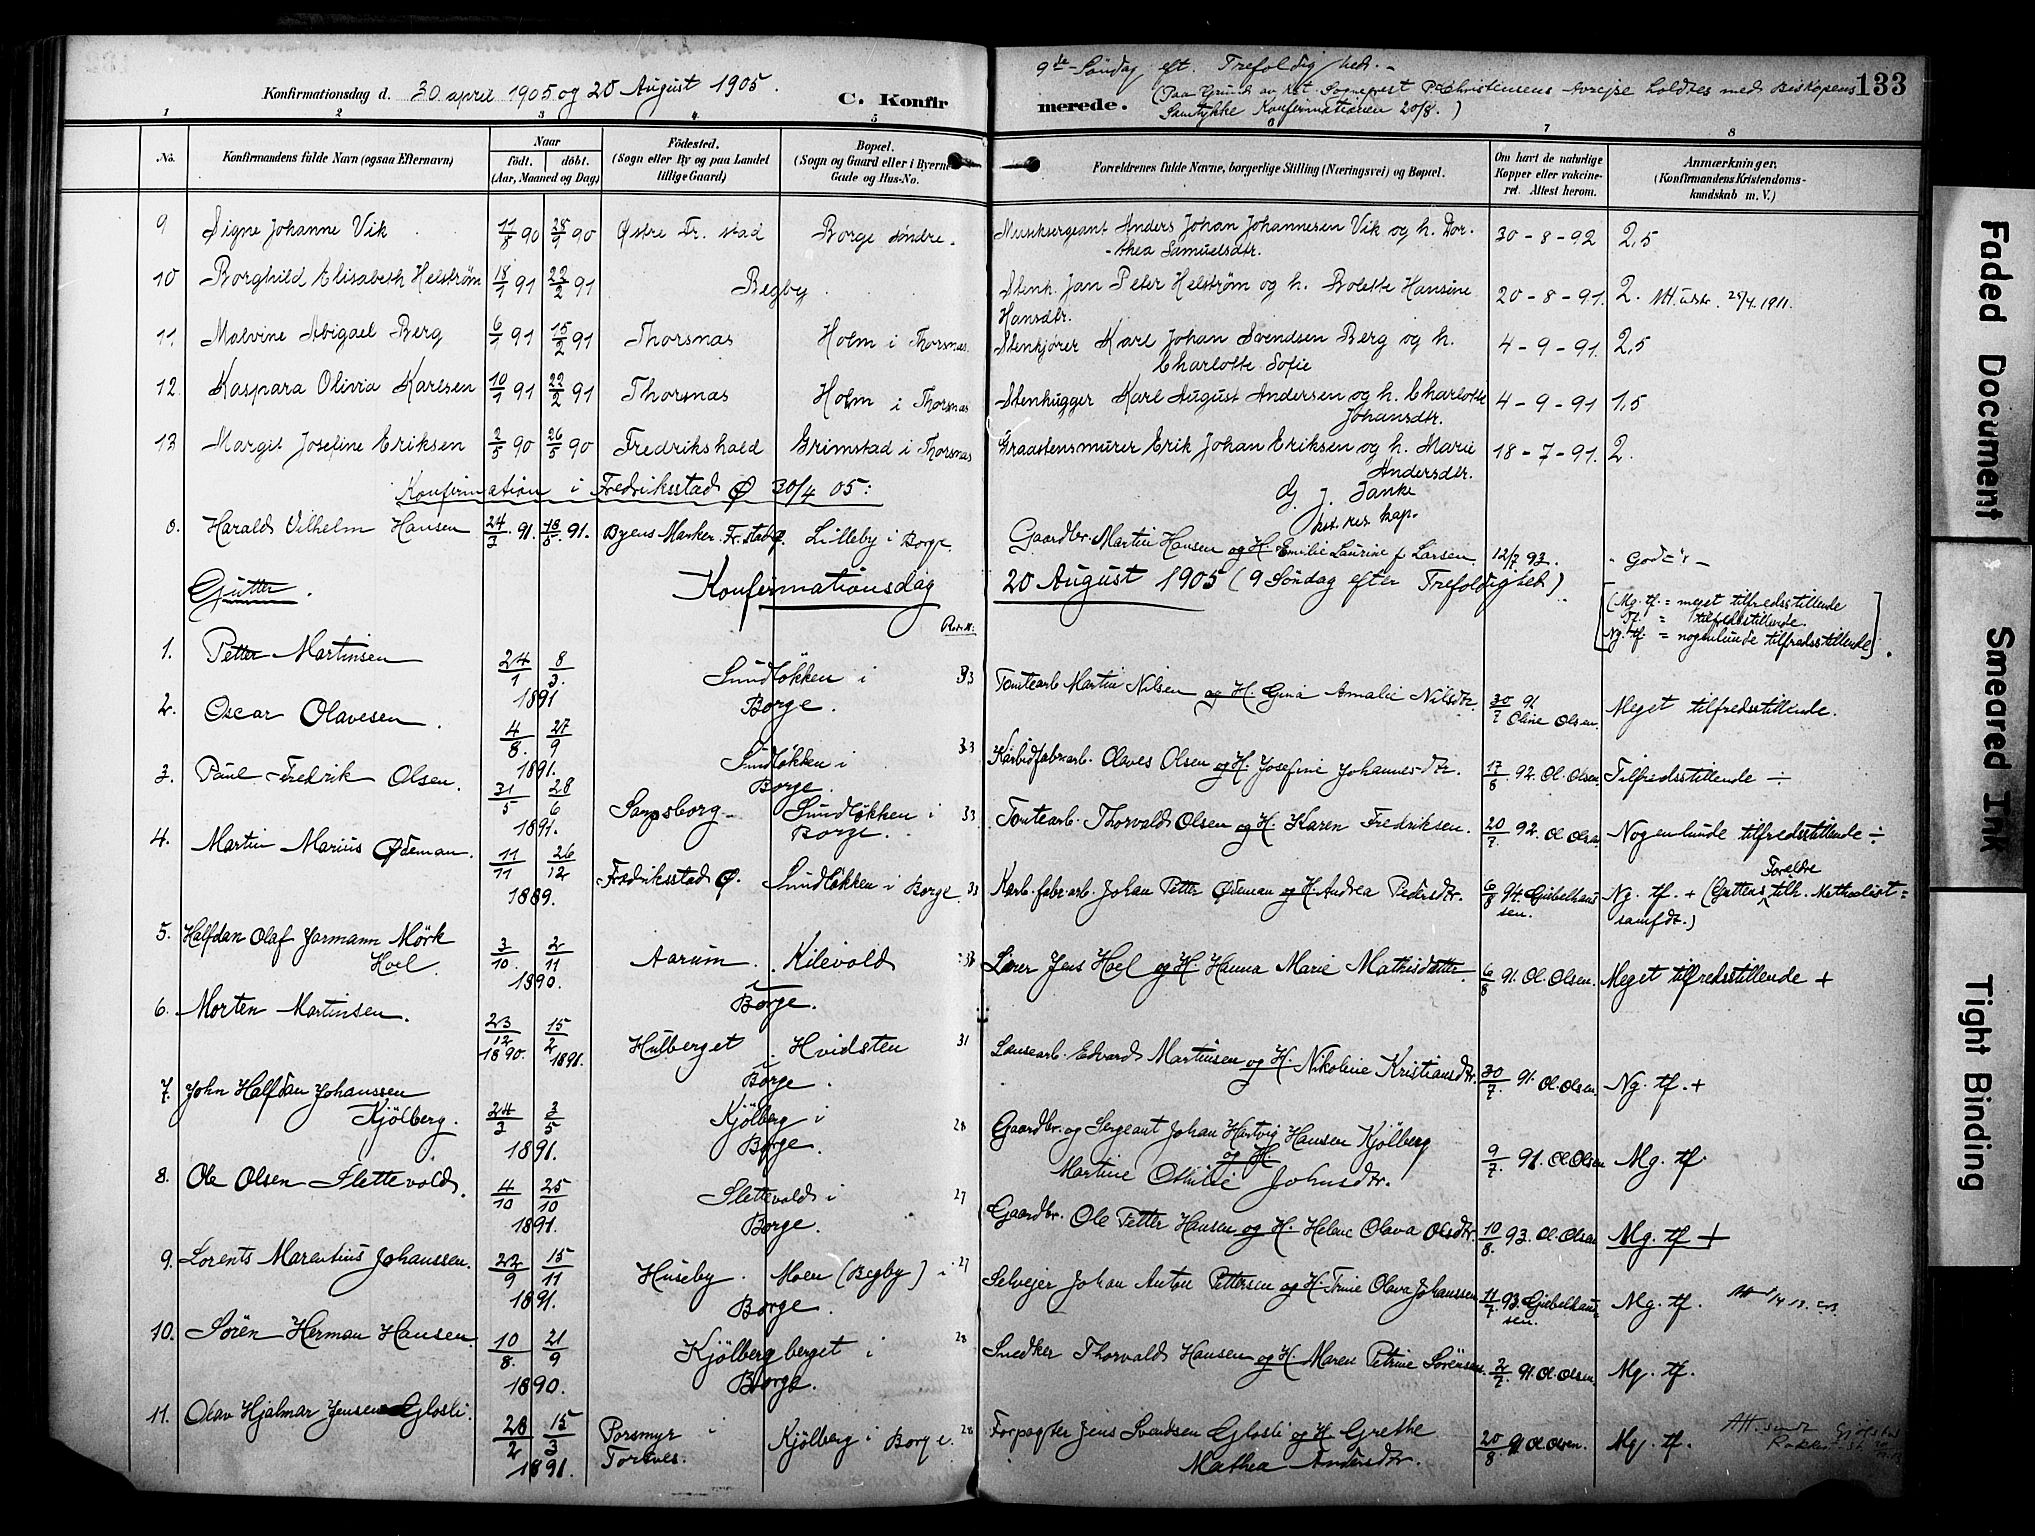 Konfirmationsdag d. 30 april 1905 og 20 August 1905. C. Konfirmerede. 133
9de Söndag eft. Trefoldighed. -
(Paa Grund av kst. Sogneprest P. Christensens Avrejse holdtes med Biskopens
Samtykke Konfirmationen 20/8.)
1 2 3 4 5 6 7 8
No. Konfirmandens fulde Navn (ogsaa Efternavn) Naar født. døbt. (Aar, Maaned og Dag) Fødested. (Sogn eller By og paa Landet tillige Gaard) Bopæl. (Sogn og Gaard eller i Byerne Gade og Hus-No. Forældrenes fulde Navne, borgerlige Stilling (Næringsvei) og Bopæl. Om havt de naturlige Kopper eller vaccineret. Attest herom. Anmærkninger. (Konfirmandens Kristendomskundskab m. V.)
9 Signe Johanne Vik 11/8 90 28/9 90 Østre Fr. stad Borge söndre. Musiksergeant Anders Johan Johannesen Vik og h. Dorthea Samuelsdtr. 30-8-92 2,5
10 Borghild Elisabeth Helstrøm 18/1 91 22/2 91 Begby Stenh. Jan Peter Helstrøm og h. Bolette Hansine Hansdtr. 20-8-91. 2.
11 Malvine Abigael Berg 6/1 91 15/2 91 Thorsnæs Holm i Thorsnæs. Stenkjører Karl Johan Svendsen Berg og h. Charlotte Sofie 4-9-91. 2,5
12 Kaspara Olivia Karlsen 10/1 91 22/2 91 Thorsnæs Holm i Thorsnæs Stenhugger Karl August Andersen og h. Charlotte Johansdtr. 4-9-91 1,5
13 Margit Josefine Eriksen 2/5 90 26/5 90 Fredrikshald Grimstad i Thorsnæs Graastensmurer Erik Johan Eriksen og h. Marie Andersdtr. 18-7-91. 2.
Konfirmation i Fredriksstad Ø 30/4 05:
G. J. Janke
kst. res. kap.
Harald Vilhelm Hansen 24/3 91. 18/5 91. Byens Marker Fr.stad Ø. Lilleby i Borge. Gaardbr. Martin Hansen og H. Emilie Laurine f. Larsen. 12/7 93.
Gutter. Konfirmationsdag 20 August 1905 (9 Söndag efter Trefoldighed).
[(Mg. tf. = meget tilfredsstillende
Tf. = tilfredsstillende.
Ng. tf. = nogenlunde tilfredsstillende].
1. Petter Martinsen 24/1 8/3. 1891 Sundløkken i Borge. 33 Tomtearb. Martin Nilsen og H. Gina Amalie Nilsdtr. 30/7 91 Oline Olsen Meget tilfredsstillende.
2. Oscar Olavesen. 4/8. 27/9 1891. Sundløkken i Borge. 33 Karbidfabr.arb. Olaves Olsen og H. Josefine Johannesdtr. 17/8 92. Ol. Olsen Tilfredsstillende ÷
3. Paul Fredrik Olsen. 31/5 28/6 1891. Sarpsborg Sundløkken i Borge. 33 Tomtearb. Thorvald Olsen og H. Karen Fredriksen. 20/7 92. Ol Olsen Nogenlunde tilfredsstillende ÷
4. Martin Marius Ødeman. 11/11 26/12 1889. Fredriksstad Ø. Sundløkken i Borge. 33 Karb.fabr.arb. Johan Petter Ødeman og H. Andrea Pedersdtr. 6/8 94. Giebelhaussen. Ng. tf. + (Guttens Forældre tilh. Methodistsamfdt.)
5. Halfdan Olaf Jarmann Mörk Hoel. 3/10. 2/11 1890. Aarum Kilevold i Borge. Lærer Jens Hoel og H. Hanna Marie Mathisdatter 6/8 91. Ol. Olsen. Meget tilfredsstillende +
6. Morten Martinsen. 23/12 1890. 15/2 1891. Hulberget Hvidsten i Borge. 31 Lænsearb. Edvard Martinsen og H. Nikoline Kristiansdtr. 30/7 91. Ol. Olsen Ng. tf. +
7. John Halfdan Johanssen Kjölberg. 24/3 3/5 1891. Kjölberg i Borge. 28 Gaardbr. og Sergeant Johan Hartvig Hansen Kjölberg og H. Martine Othilie Johnsdtr. 9/7 91. Ol Olsen Mg. tf.
8. Ole Olsen Slettevold. 4/10 25/10 1891. Slettevold i Borge. 27 Gaardbr. Ole Petter Hansen og H. Helene Olava Olsdtr. 10/8. 93. Ol. Olsen Mg. tf +
9. Lorents Marentius Johanssen. 22/9 15/11 1891. Huseby. Moen (Begby) i Borge. 27 Selvejer Johan Anton Pettersen og H. Trine Olava Johanssen 11/7 93. Giebelhaussen. Mg. tf.
10. Sören Herman Hansen 10/8. 21/9 1890. Kjölbergberget i Borge. 28 Snedker Thorvald Hansen og H. Maren Petrine Sörensen. 2/7 91. Ol. Olsen. Mg. tf.
11. Olav Hjalmar Jensen Glosli. 28/2 15/3 1891. Porsmyr i Torsnes. Kjölberg i Borge. 28 Forpagter Jens Svendsen Glosli og H. Grethe Mathea Andersdtr. 20/8 91 Ol. Olsen. Mg. tf.
Faded Document
Smeared Ink
Tight Binding